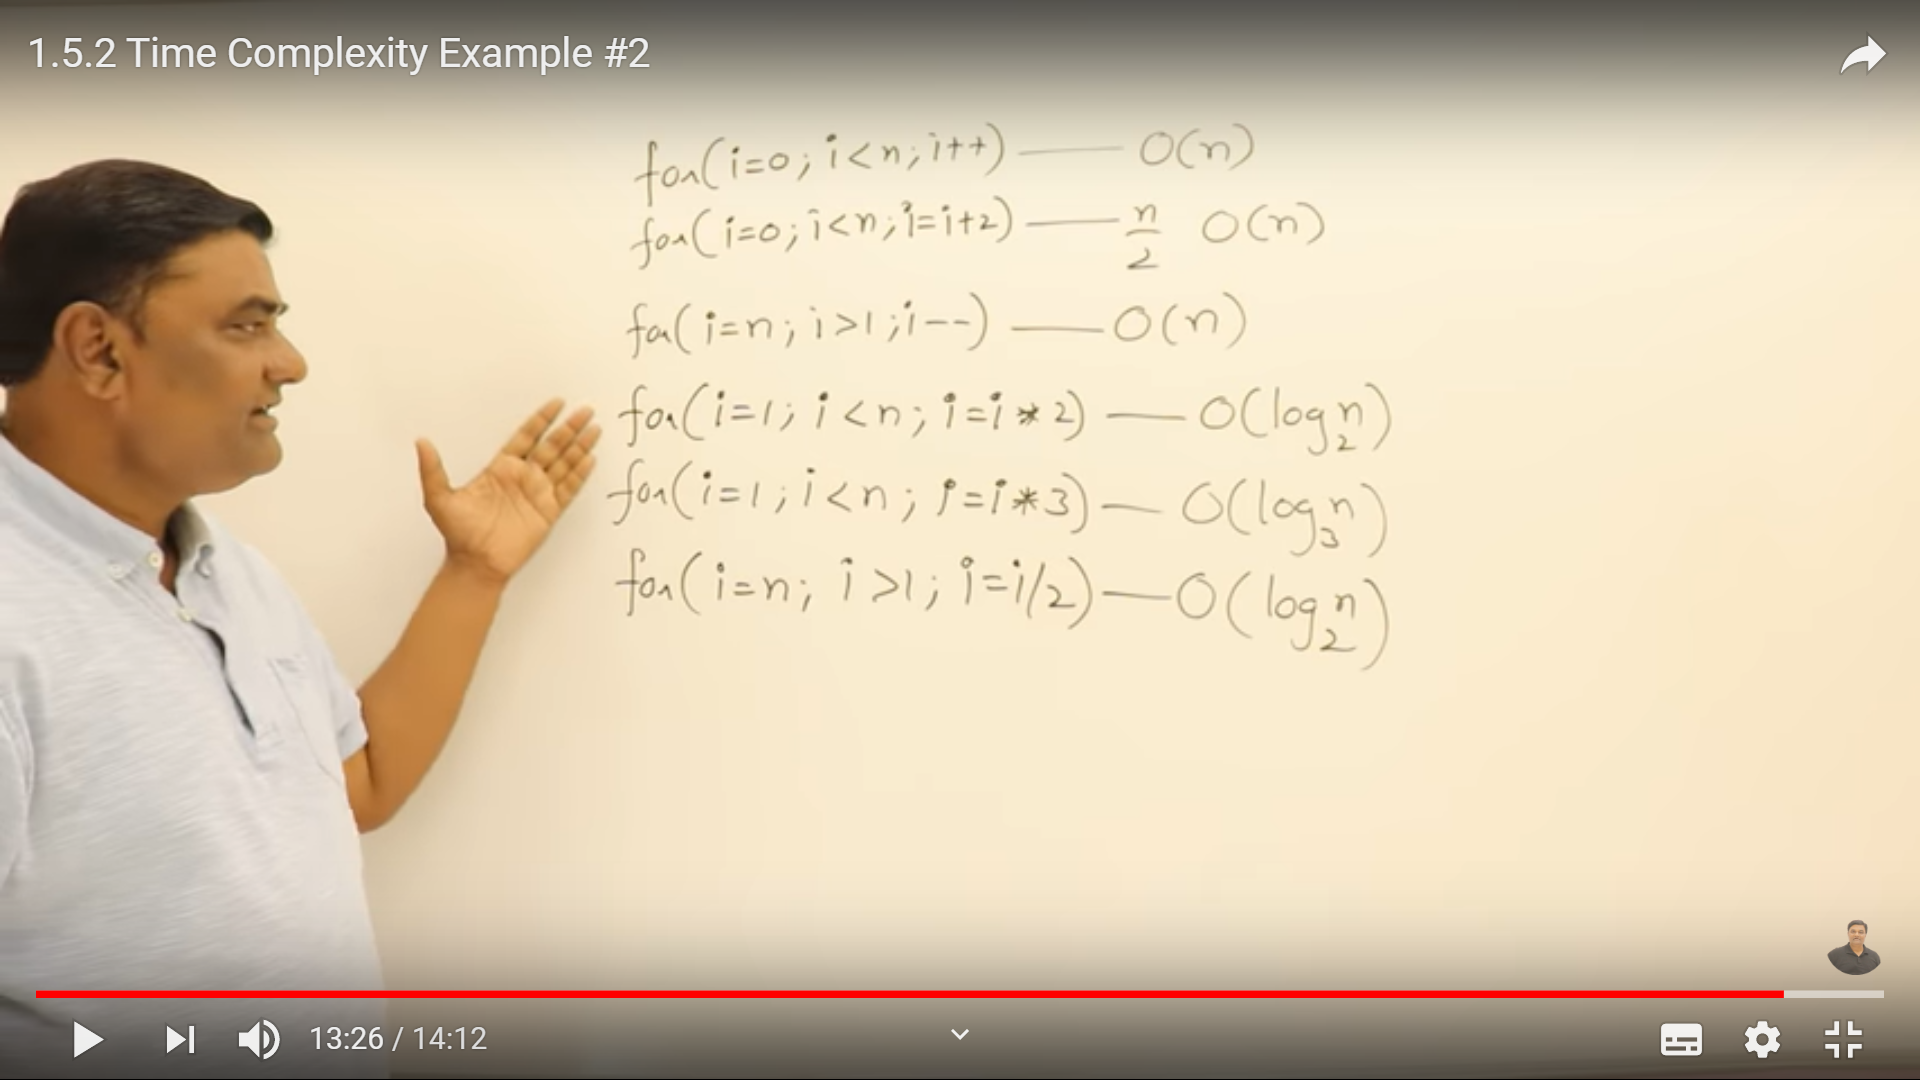 1.5.2 Time Complexity Example #2
for(i=0; i<n; i++) —— O(n)
for(i=0; i<n; i=i+2) —— n/2 O(n)
for(i=n; i>1; i--) —— O(n)
for(i=1; i<n; i=i*2) —— O(log₂n)
for(i=1; i<n; i=i*3) — O(log₃n)
for(i=n; i>1; i=i/2) — O(log₂n)
13:26 / 14:12